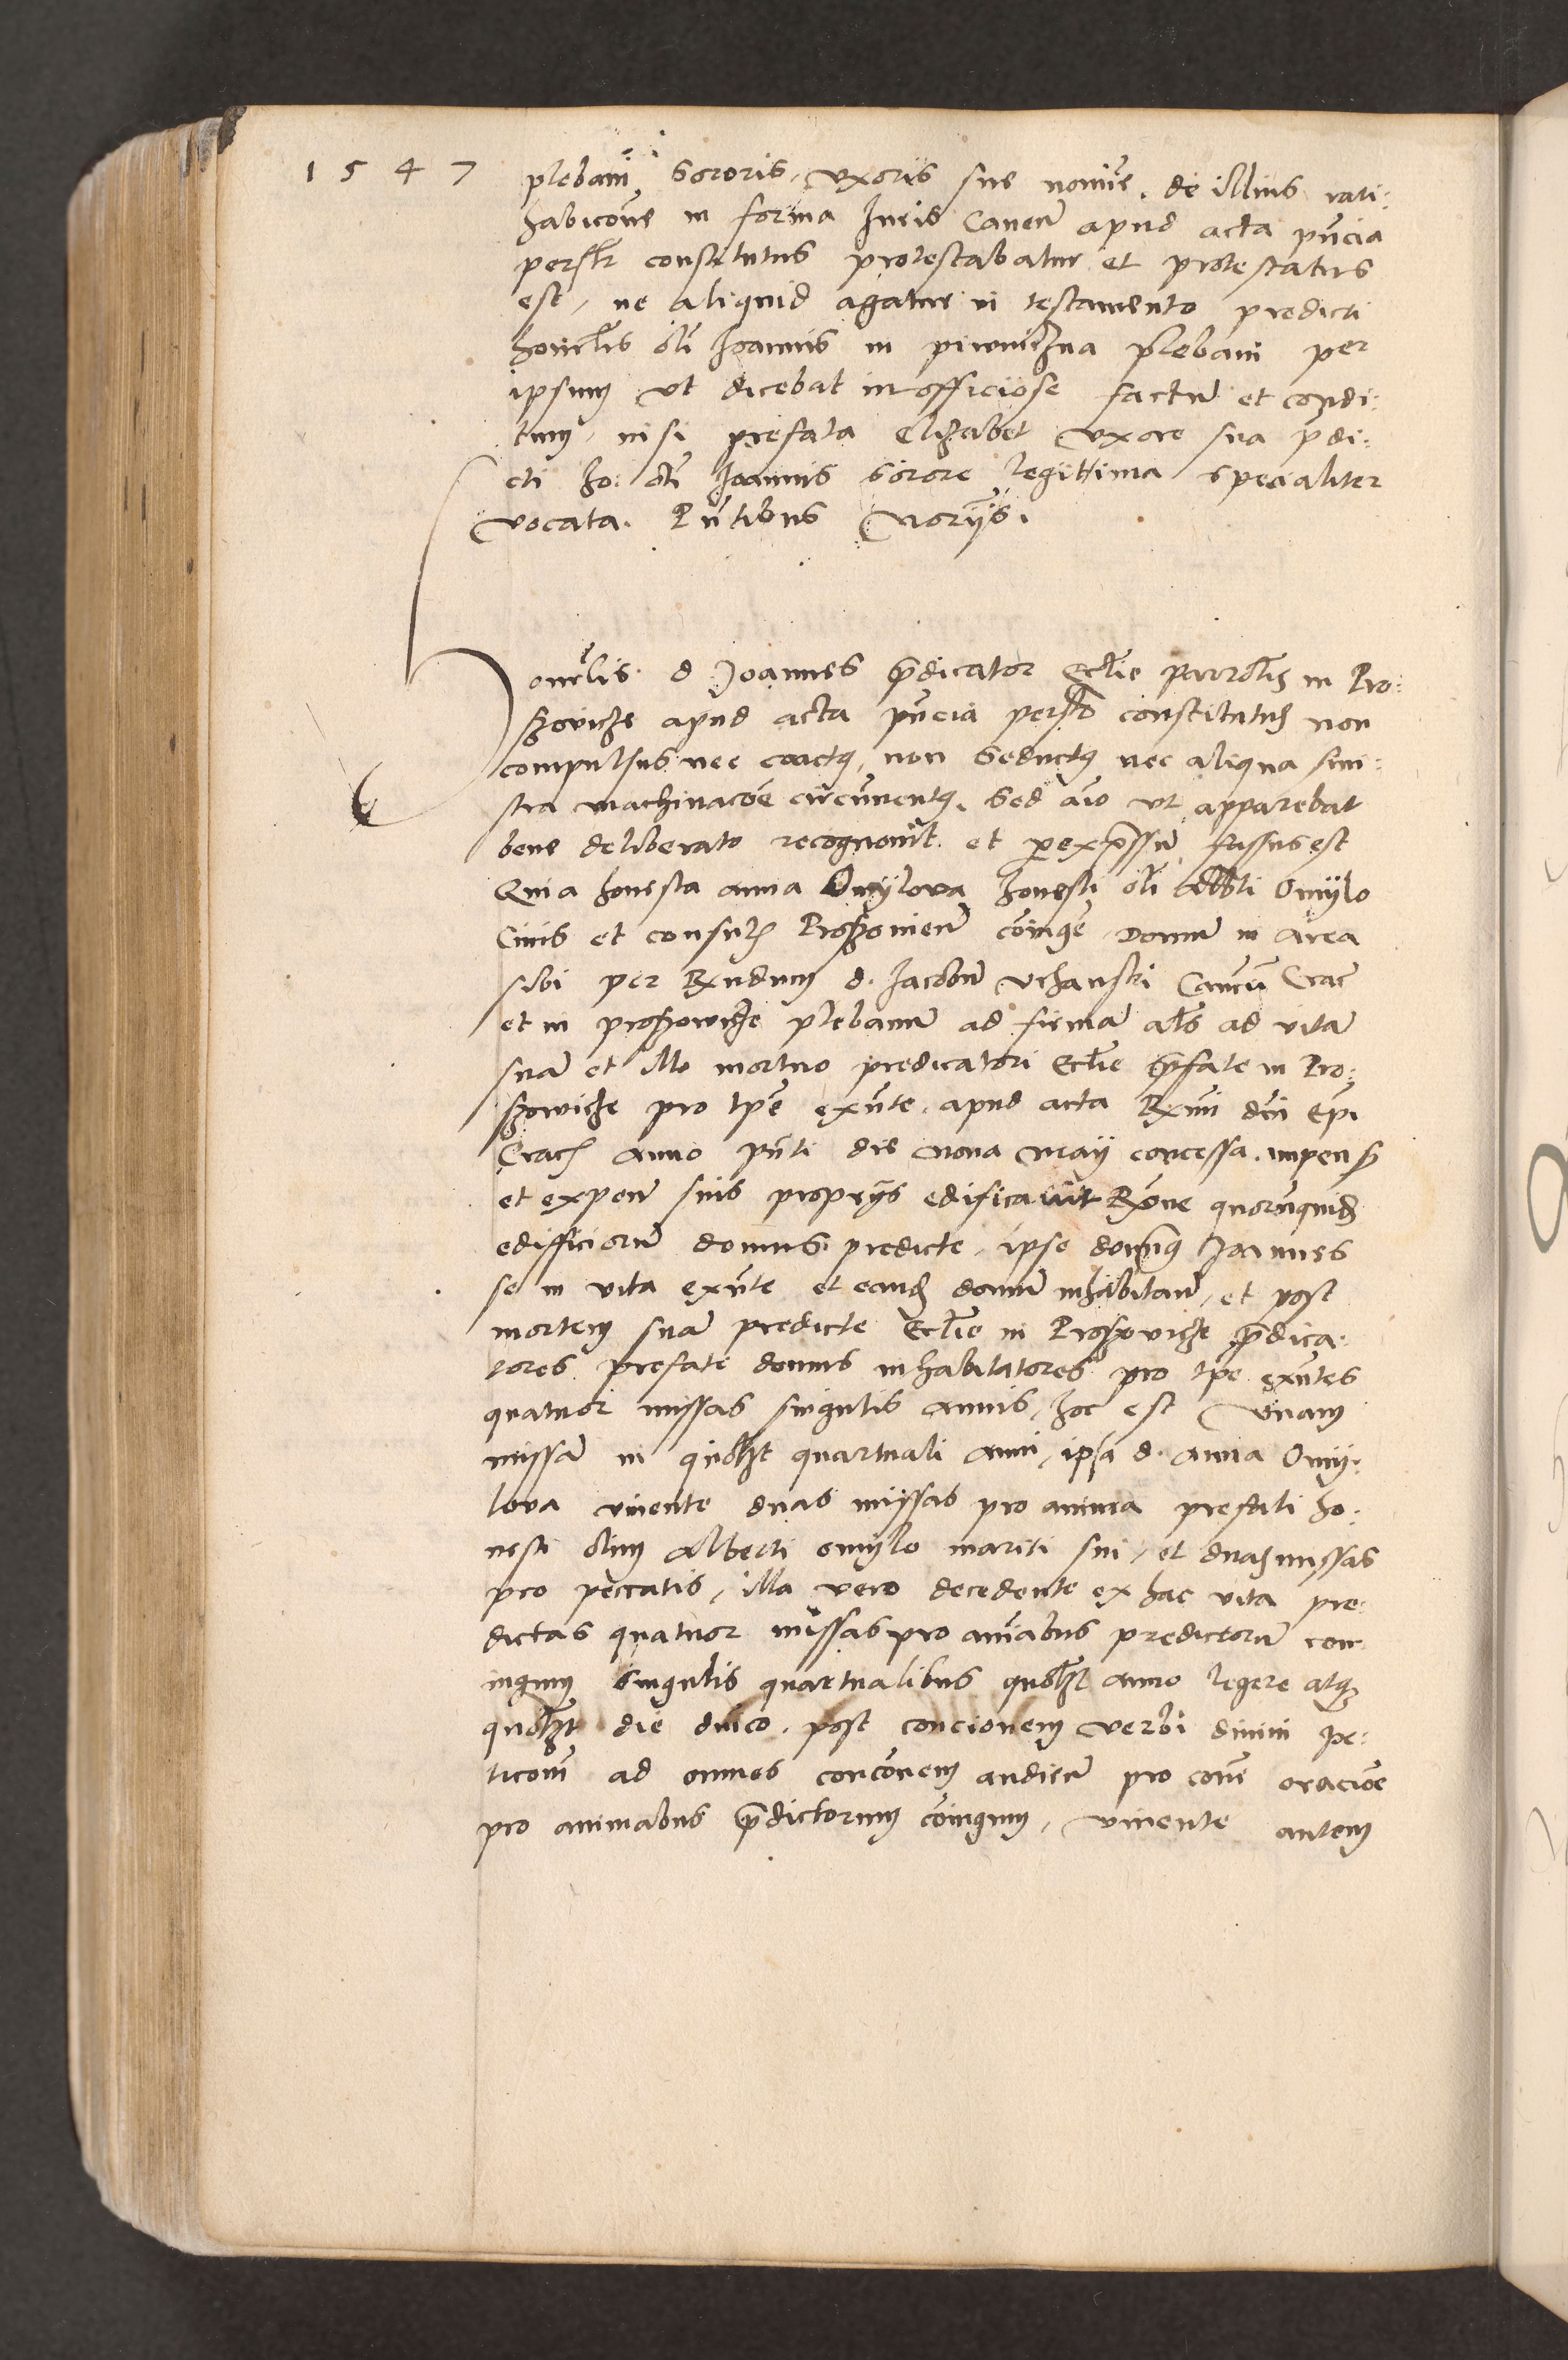 1547
plebani sororis, uxoris sue noīe, de illius rati:
habicōne in forma Iuris Canen̄ apud acta pn̄cia
persl̄r constitutus protestabatur et protestatus
est, ne aliquid agatur in testamento predicti
honrl̄is olī Joannis in piwniczna plebani per
ipsum ut dicebat inofficiose factū et condi:
tum, nisi prefata Elizabet uxore sua pdi:
cti ho: olī Joannis sorore legittima specialiter
vocata. Pn̄tibus Noriis.
Honrl̄is d Joannes p̄dicator Eccl̄ie parrol̄is in Pro:
schovicze apud acta pn̄cia persl̄r constitutus non
compulsus nec coactus, non seductus nec aliqua sini:
stra machinacōe circumventus, sed aīo ut apparebat
bene deliberato recognovit et per expressū fassus est
Quia honesta anna Omylova honesti olī Alb̄ti Omylo
Civis et consulis Proszovien̄ cōiunx, Domū in area
sibi per Rn̄dum d. Jacobū Uchanski Can̄cum Crac̄
et in proszowicze plebanū ad firmā al̄s ad vitā
suā et illo mortuo predicatori Eccl̄ie p̄fate in Pro:
szowicze pro tp̄e exn̄te, apud acta Rx̄mi dn̄i Ep̄i
Crac̄ anno pn̄ti die nona maij concessa, impens̄
et expen̄ suis proprijs edificavit Rōne quorūquid̄
edifficiorū domus predicte, ipse dominus Joannes
se in vita exn̄te et eand̄ domū inhabitan̄, et post
mortem suā predicte Eccl̄ie in Proszovicze p̄dica:
tores prefate domus inhabitatores pro tp̄e exn̄tes
quatuor missas singulis annis, hoc est unam
missā in quol̄zt quartuali anni, ipsa d. anna Omy:
lova vivente duas missas pro anima prefati ho:
nesti olim Alberti omylo mariti sui, et duas missas
pro peccatis, illa vero decedente ex hac vita pre:
dictas quatuor missas pro aīabus predictorū con:
iugum singulis quartualibus quol̄zt anno legere atq̄
quol̄zt die dn̄ico, post concionem verbi divini pe:
ticōm ad omnes concōnem audien̄ pro cōne oraciōe
pro animabus p̄dictorum cōiugum, vivente autem